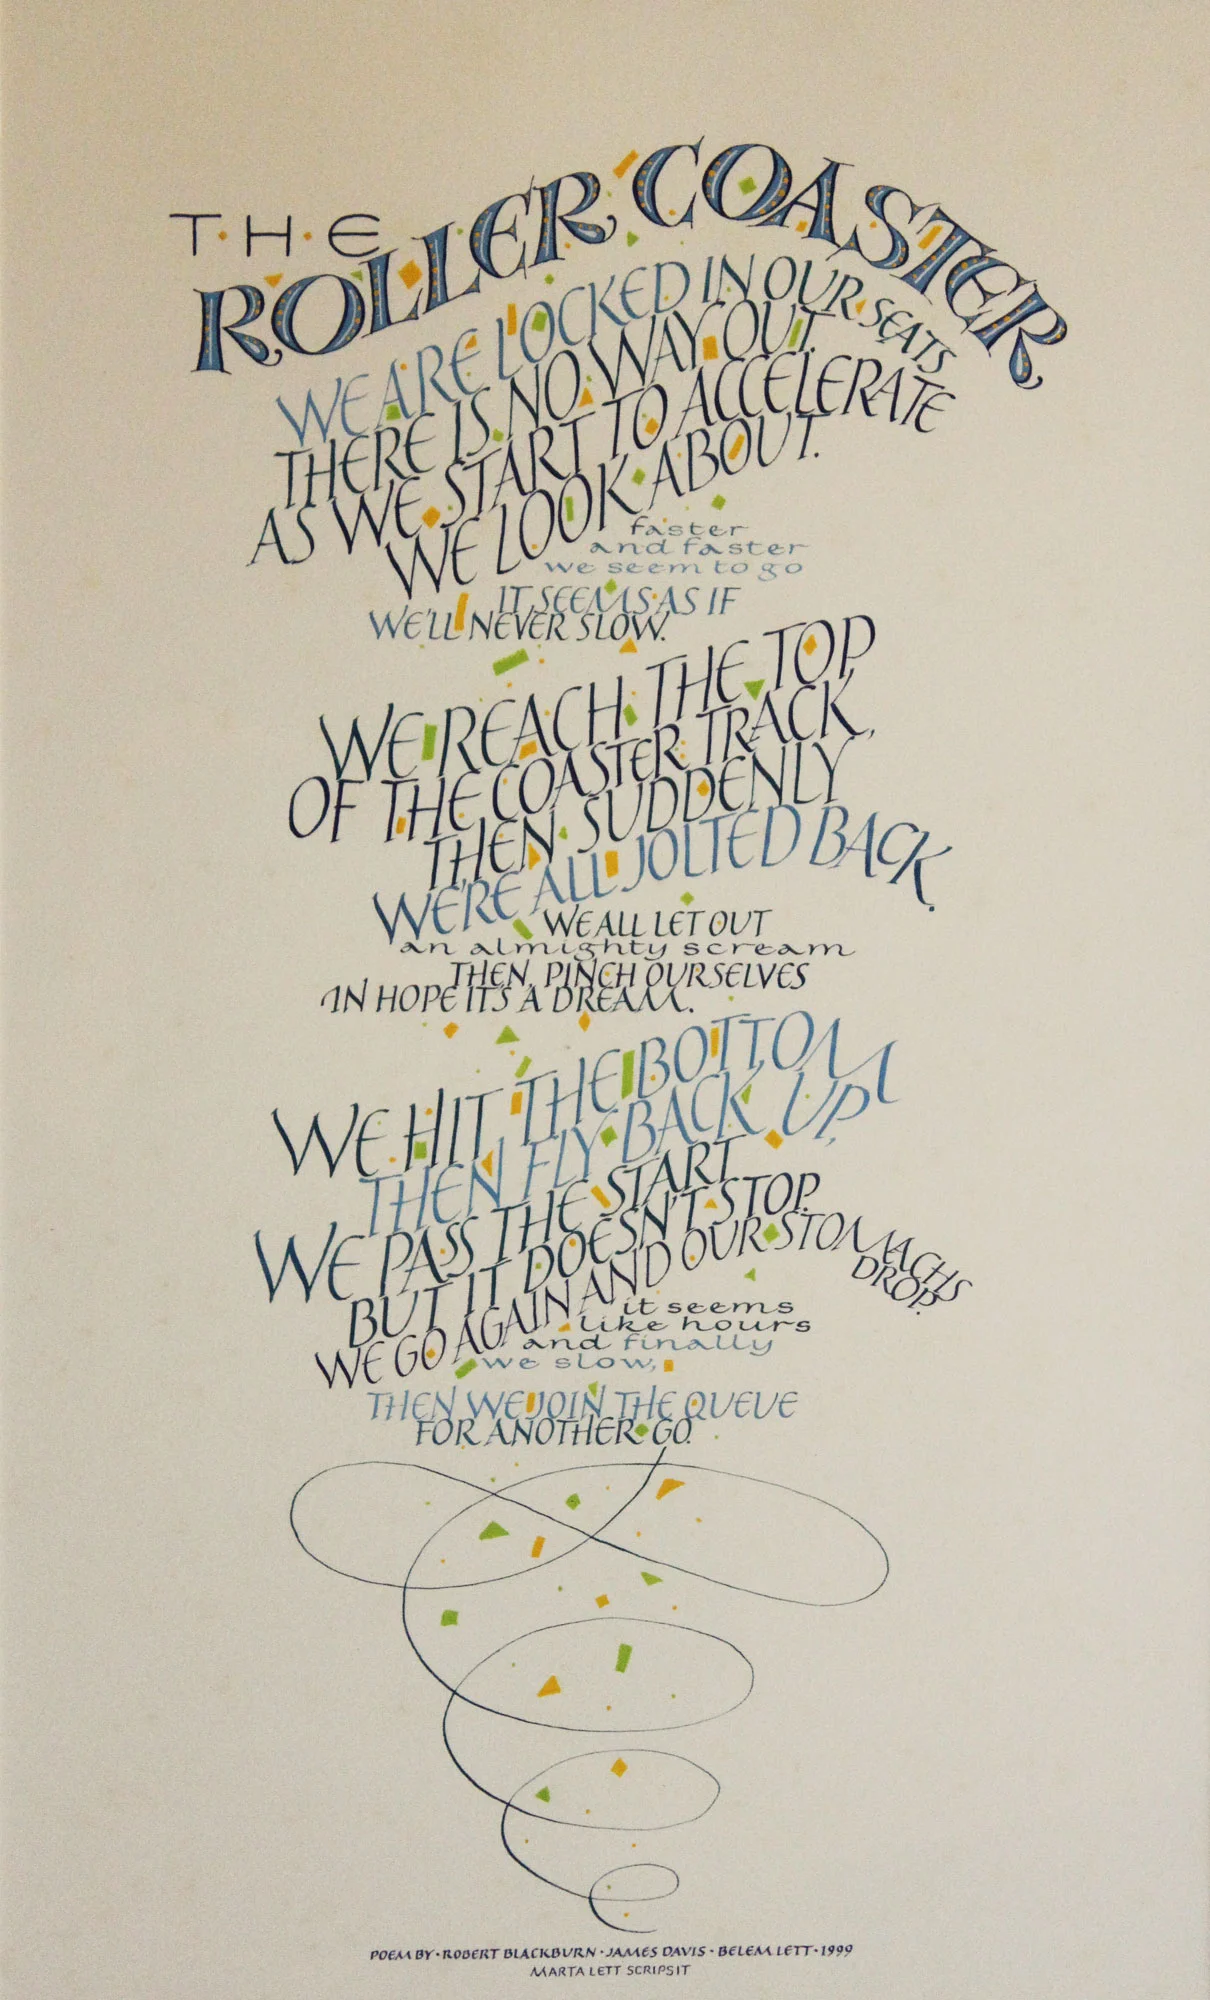 T·H·E
ROLLER COASTER
WE ARE LOCKED IN OUR SEATS
THERE IS NO WAY OUT.
AS WE START TO ACCELERATE
WE LOOK ABOUT.
faster
and faster
we seem to go
IT SEEMS AS IF
WE'LL NEVER SLOW.
WE REACH THE TOP
OF THE COASTER TRACK,
THEN SUDDENLY
WE'RE ALL JOLTED BACK.
WE ALL LET OUT
an almighty scream
THEN, PINCH OURSELVES
IN HOPE ITS A DREAM.
WE HIT THE BOTTOM
THEN FLY BACK UP,
WE PASS THE START
BUT IT DOESN'T STOP.
WE GO AGAIN AND OUR STOMACHS
DROP.
it seems
like hours
and finally
we slow,
THEN WE JOIN THE QUEUE
FOR ANOTHER GO.
POEM BY · ROBERT BLACKBURN · JAMES DAVIS · BELEM LETT · 1999
MARTA LETT SCRIPSIT